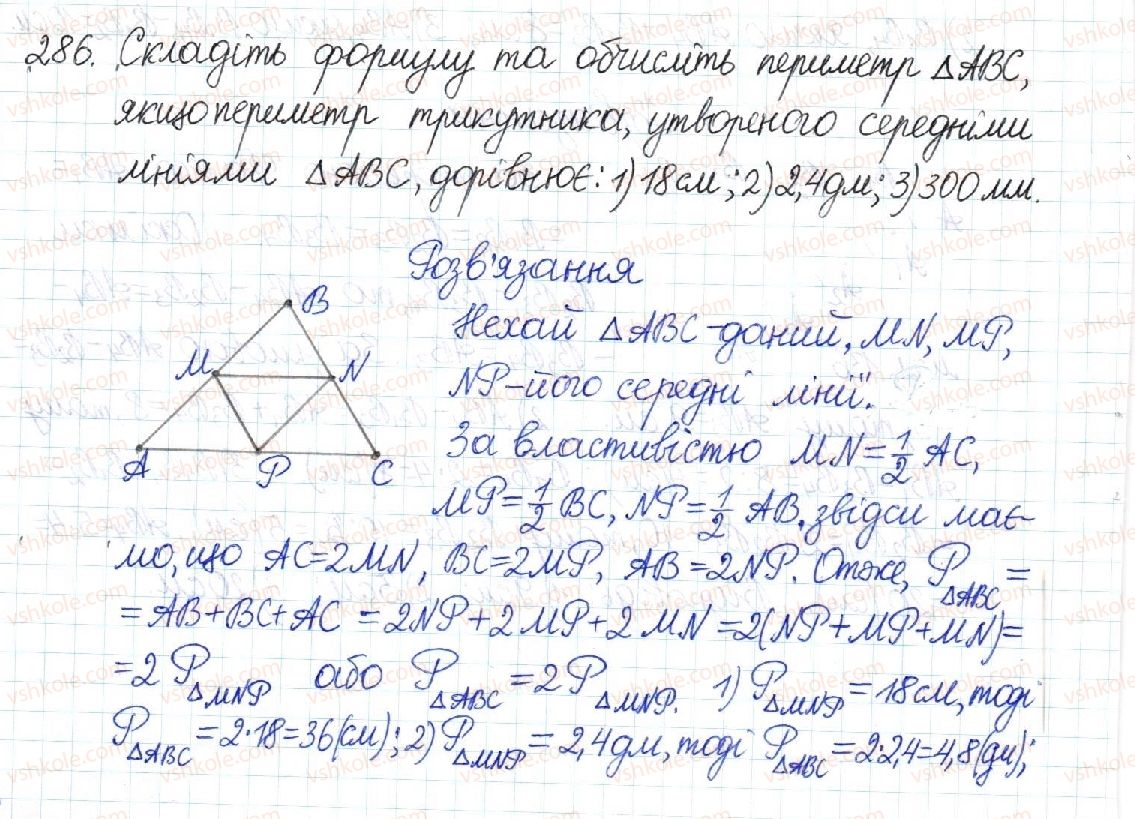 286. Складіть формулу та обчисліть периметр △ABC,
якщо периметр трикутника, утвореного середніми
лініями △ABC, дорівнює: 1) 18 см; 2) 2,4 дм; 3) 300 мм.
Розв'язання
B
Нехай △ABC - даний, MN, MP,
M N
NP - його середні лінії.
За властивістю MN = 1/2 AC,
A P C
MP = 1/2 BC, NP = 1/2 AB, звідси має-
мо, що AC = 2MN, BC = 2MP, AB = 2NP. Отже, P△ABC =
= AB + BC + AC = 2NP + 2MP + 2MN = 2(NP + MP + MN) =
= 2 P△MNP або P△ABC = 2 P△MNP. 1) P△MNP = 18 см, тоді
P△ABC = 2·18 = 36 (см); 2) P△MNP = 2,4 дм, тоді P△ABC = 2·2,4 = 4,8 (дм);
vshkole.com